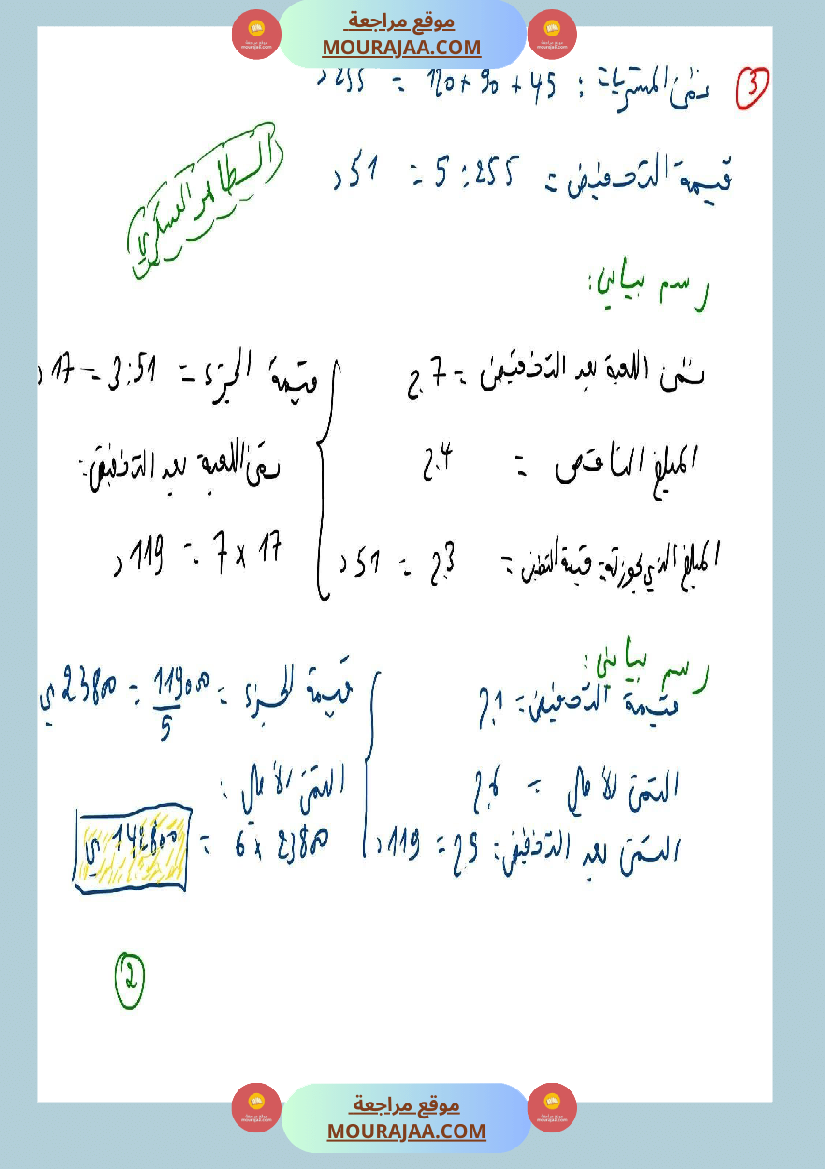 موقع مراجعة
MOURAJAA.COM
3
ثمن المشتريات : 45 + 90 + 120 = 255 د
قيمة التخفيض = 255 : 5 = 51 د
رسم بياني:
ثمن اللعبة بعد التخفيض = 7 ج
المبلغ الناقص = 4 ج
المبلغ الذي بحوزته = قيمة التخفيض = 3 ج = 51 د
قيمة الجزء = 51 : 3 = 17 د
ثمن اللعبة بعد التخفيض:
17 x 7 = 119 د
رسم بياني:
قيمة التخفيض = 1 ج
الثمن الأصلي = 6 ج
الثمن بعد التخفيض = 5 ج = 119 د
قيمة الجزء = 119000 / 5 = 23800 مي
الثمن الأصلي :
23800 x 6 = 142800 مي
2
موقع مراجعة
MOURAJAA.COM